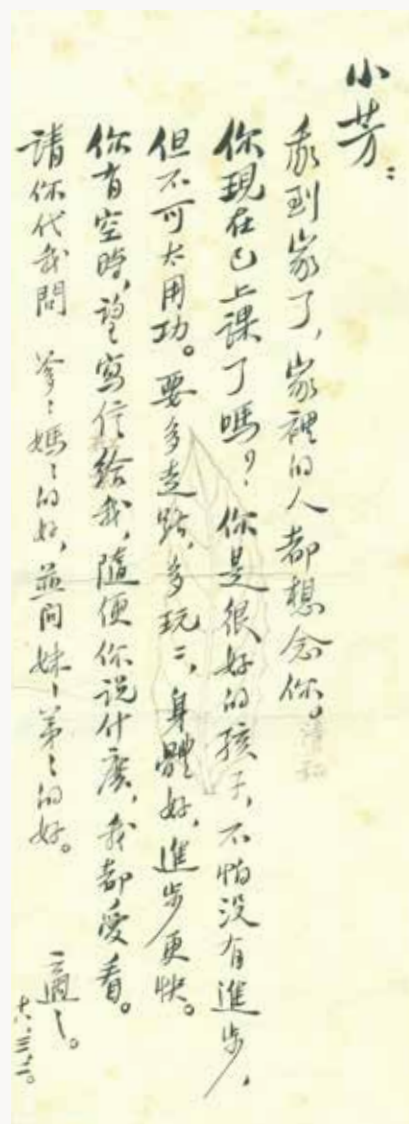 小芳：
我到家了，家裡的人都想念你。
你現在已上課了嗎？你是很好的孩子，不怕没有進步，
但不可太用功。要多走路，多玩二，身體好，進步更快。
你有空時，望寫信給我，隨便你说什麽，我都愛看。
請你代我問 爹〻媽〻的好，並问妹〻弟〻的好。
適〻。